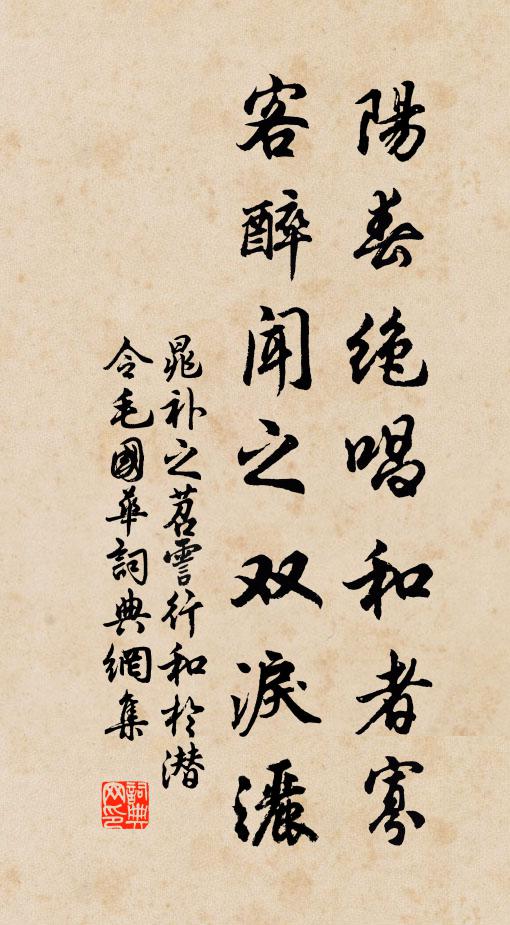 陽春絶唱和者寡
客醉聞之双淚灑
晁补之苕霅行和於潜
令毛國華詞典網集
詞典
网印